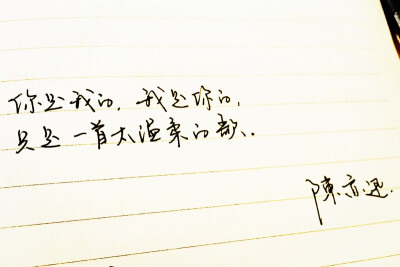 你是我的，我是你的，
只是一首太温柔的歌..
陳奕迅.